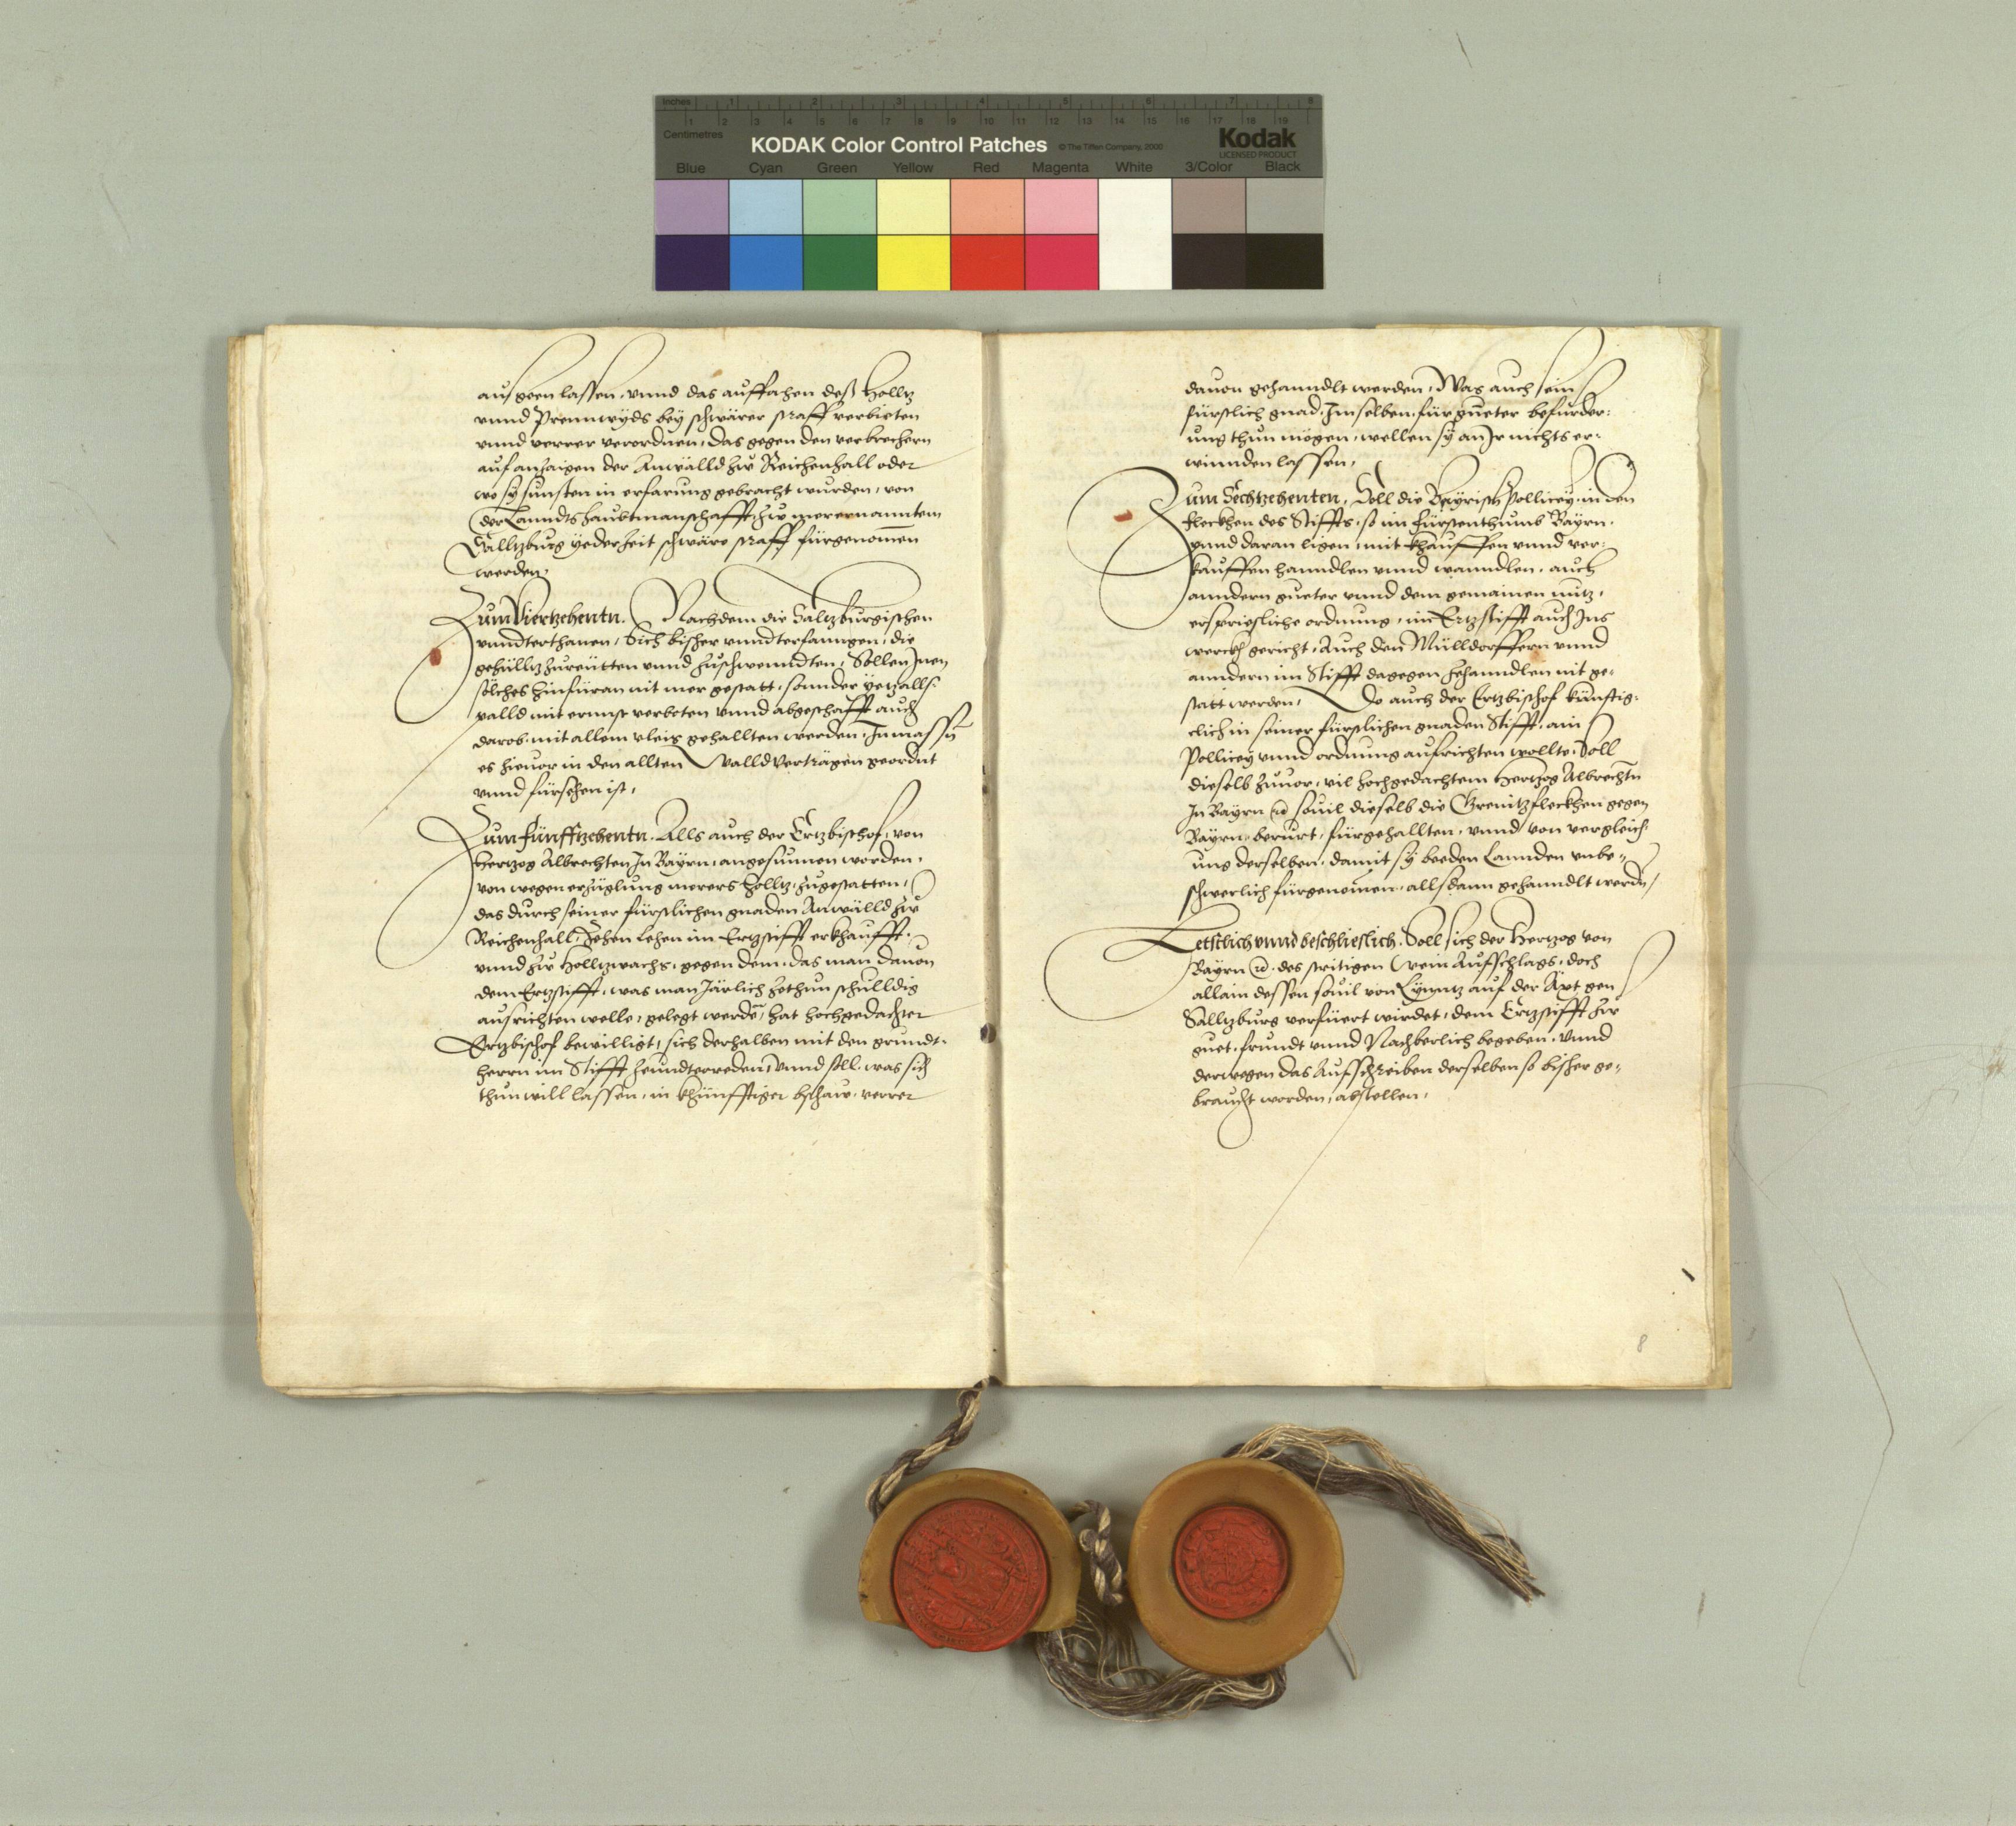 Inches 1 2 3 4 5 6 7 8
1 2 3 4 5 6 7 8 9 10 11 12 13 14 15 16 17 18 19
Centimetres
KODAK Color Control Patches © The Tiffen Company, 2000 Kodak
LICENSED PRODUCT
Blue Cyan Green Yellow Red Magenta White 3/Color Black
ausgeen lassen, vnnd das auffkhauffen deß Holltz
vnnd Prennwyds bey schwärer straff verbieten
vnnd verrer verordnen, das gegen den verbrechern
auf anzaigen der Anwälld zw Reichenhall oder
wo sy sunsten in erfarung gebracht wurden, von
der Lanndtshaubtmanschafft zw merernanntem
Salltzburg yederzeit schwäre straff fürgenomen
werden,
Zum Viertzehentn. Nachdem die Saltzburgischen
vnndterthanen, Sich bisher vnndterfanngen, die
gehülltz zureütten vnnd zuschwenndten, Sollen Inen
solches hinfüran nit mer gestatt, sonnder yetzalls
palld mit ernnst verbeten vnnd abgeschafft auch
darob mit allem vleis gehallten werden, Inmassn
es hieuor in den allten Walld verträgen geordnt
vnnd fürsehen ist,
Zum fünfftzehentn. Alls auch der Ertzbischof, von
Hertzog Albrechten In Bayrn, angesunnen worden,
von wegen erzüglung merers holltz, zugestatten,
das durch seiner fürstlichen gnaden Anwälld zw
Reichenhall, Zehen Lehen im Ertzstifft erkhaufft,
vnnd zw holltzwachs, gegen dem, das man dauon
dem Ertzstifft, was man Järlich zethun schulldig
ausrichten welle, gelegt werdn, hat hochgedachter
Ertzbischof bewilligt, sich derhalben mit den grundt-
herrn im Stifft zeundterreden, vnnd soll, was sich
thun will lassen, in khünfftiger bschaw, verrer
dauon gehanndlt werden, Was auch sein
fürstlich gnad, Im selben, für gueter befürder:
ung thun mögen, wellen sy an Ir nichts er:
winnden lassen,
Zum Sechtzehenten, Soll die Bayrisch Pollicey, in den
fleckhen des Stiffts, so im fürstenthumb Bayrn,
vnnd daran ligen, mit khauffen vnnd ver:
kauffen hanndlen vnnd wanndlen, auch
anndern gueter vnnd dem gemainen nutz,
erspriesliche ordnung, im Ertzstifft auch Ins
werch gericht, Auch den Mülldorffern vnnd
anndern im Stifft dagegen zehanndlen nit ge:
statt werden, Do auch der Ertzbischof künftig:
clich in seiner fürstlichen gnaden Stifft, ain
Pollicey vnnd ordnung aufrichten wollte, Soll
dieselb zuuor, vil hochgedachtem Hertzog Albrechtn
In Bayrn etc souil dieselb die Grenitzfleckhen gegen
Bayrn, berurt, fürgehallten, vnnd von vergleich:
ung derselben, damit sy beeden Lannden vnbe:
schwerlich fürgenomen, allsdann gehanndlt werdn,
Letstlich vnnd beschlieslich. Soll sich der Hertzog von
Bayrn etc. des stritigen Wein Aufschlags, doch
allain dessen souil von Lynntz auf der Axt gen
Salltzburg verfüert wirdet, dem Ertzstifft zw
guet, frundt vnnd Nachberlich begeben, vnnd
derwegen das Aufschreiben derselben so bisher ge:
braucht worden, abstellen,
8